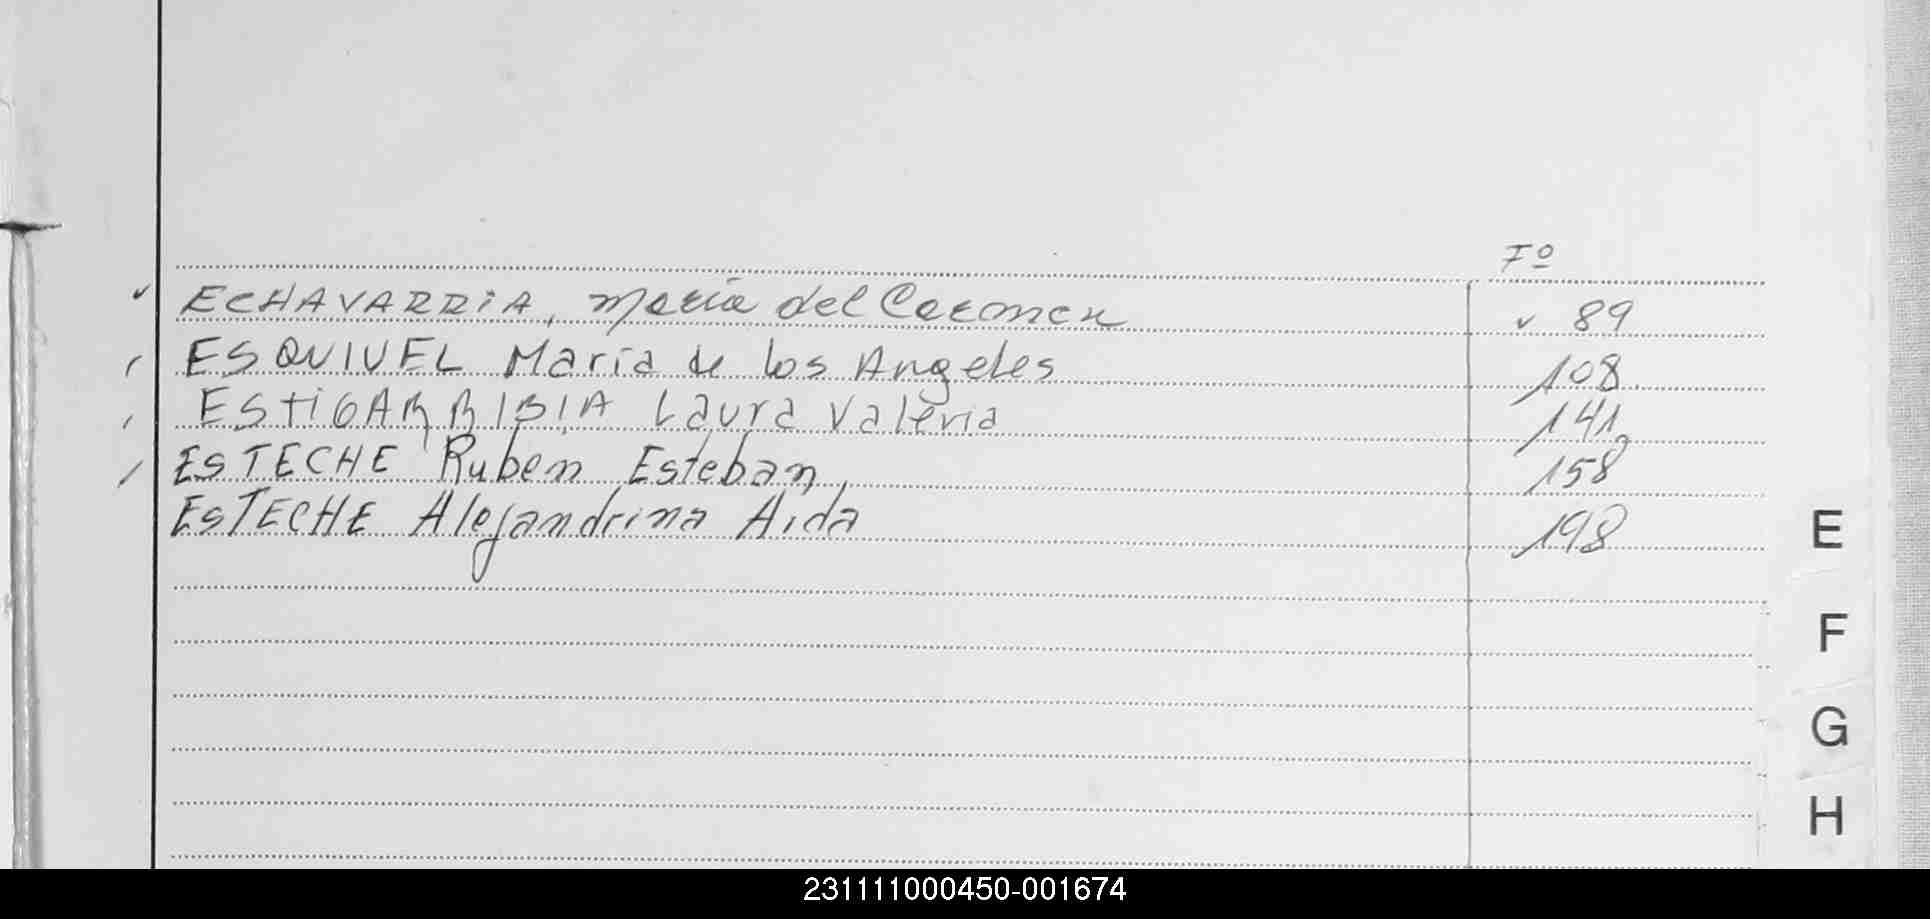 Fº
✓ ECHAVARRIA, María del Carmen ✓ 89
ESQUIVEL Maria de los Angeles 108
ESTIGARRIBIA Laura Valeria 141
ESTECHE Ruben Esteban 158
ESTECHE Alejandrina Aida 198
E
F
G
H
231111000450-001674